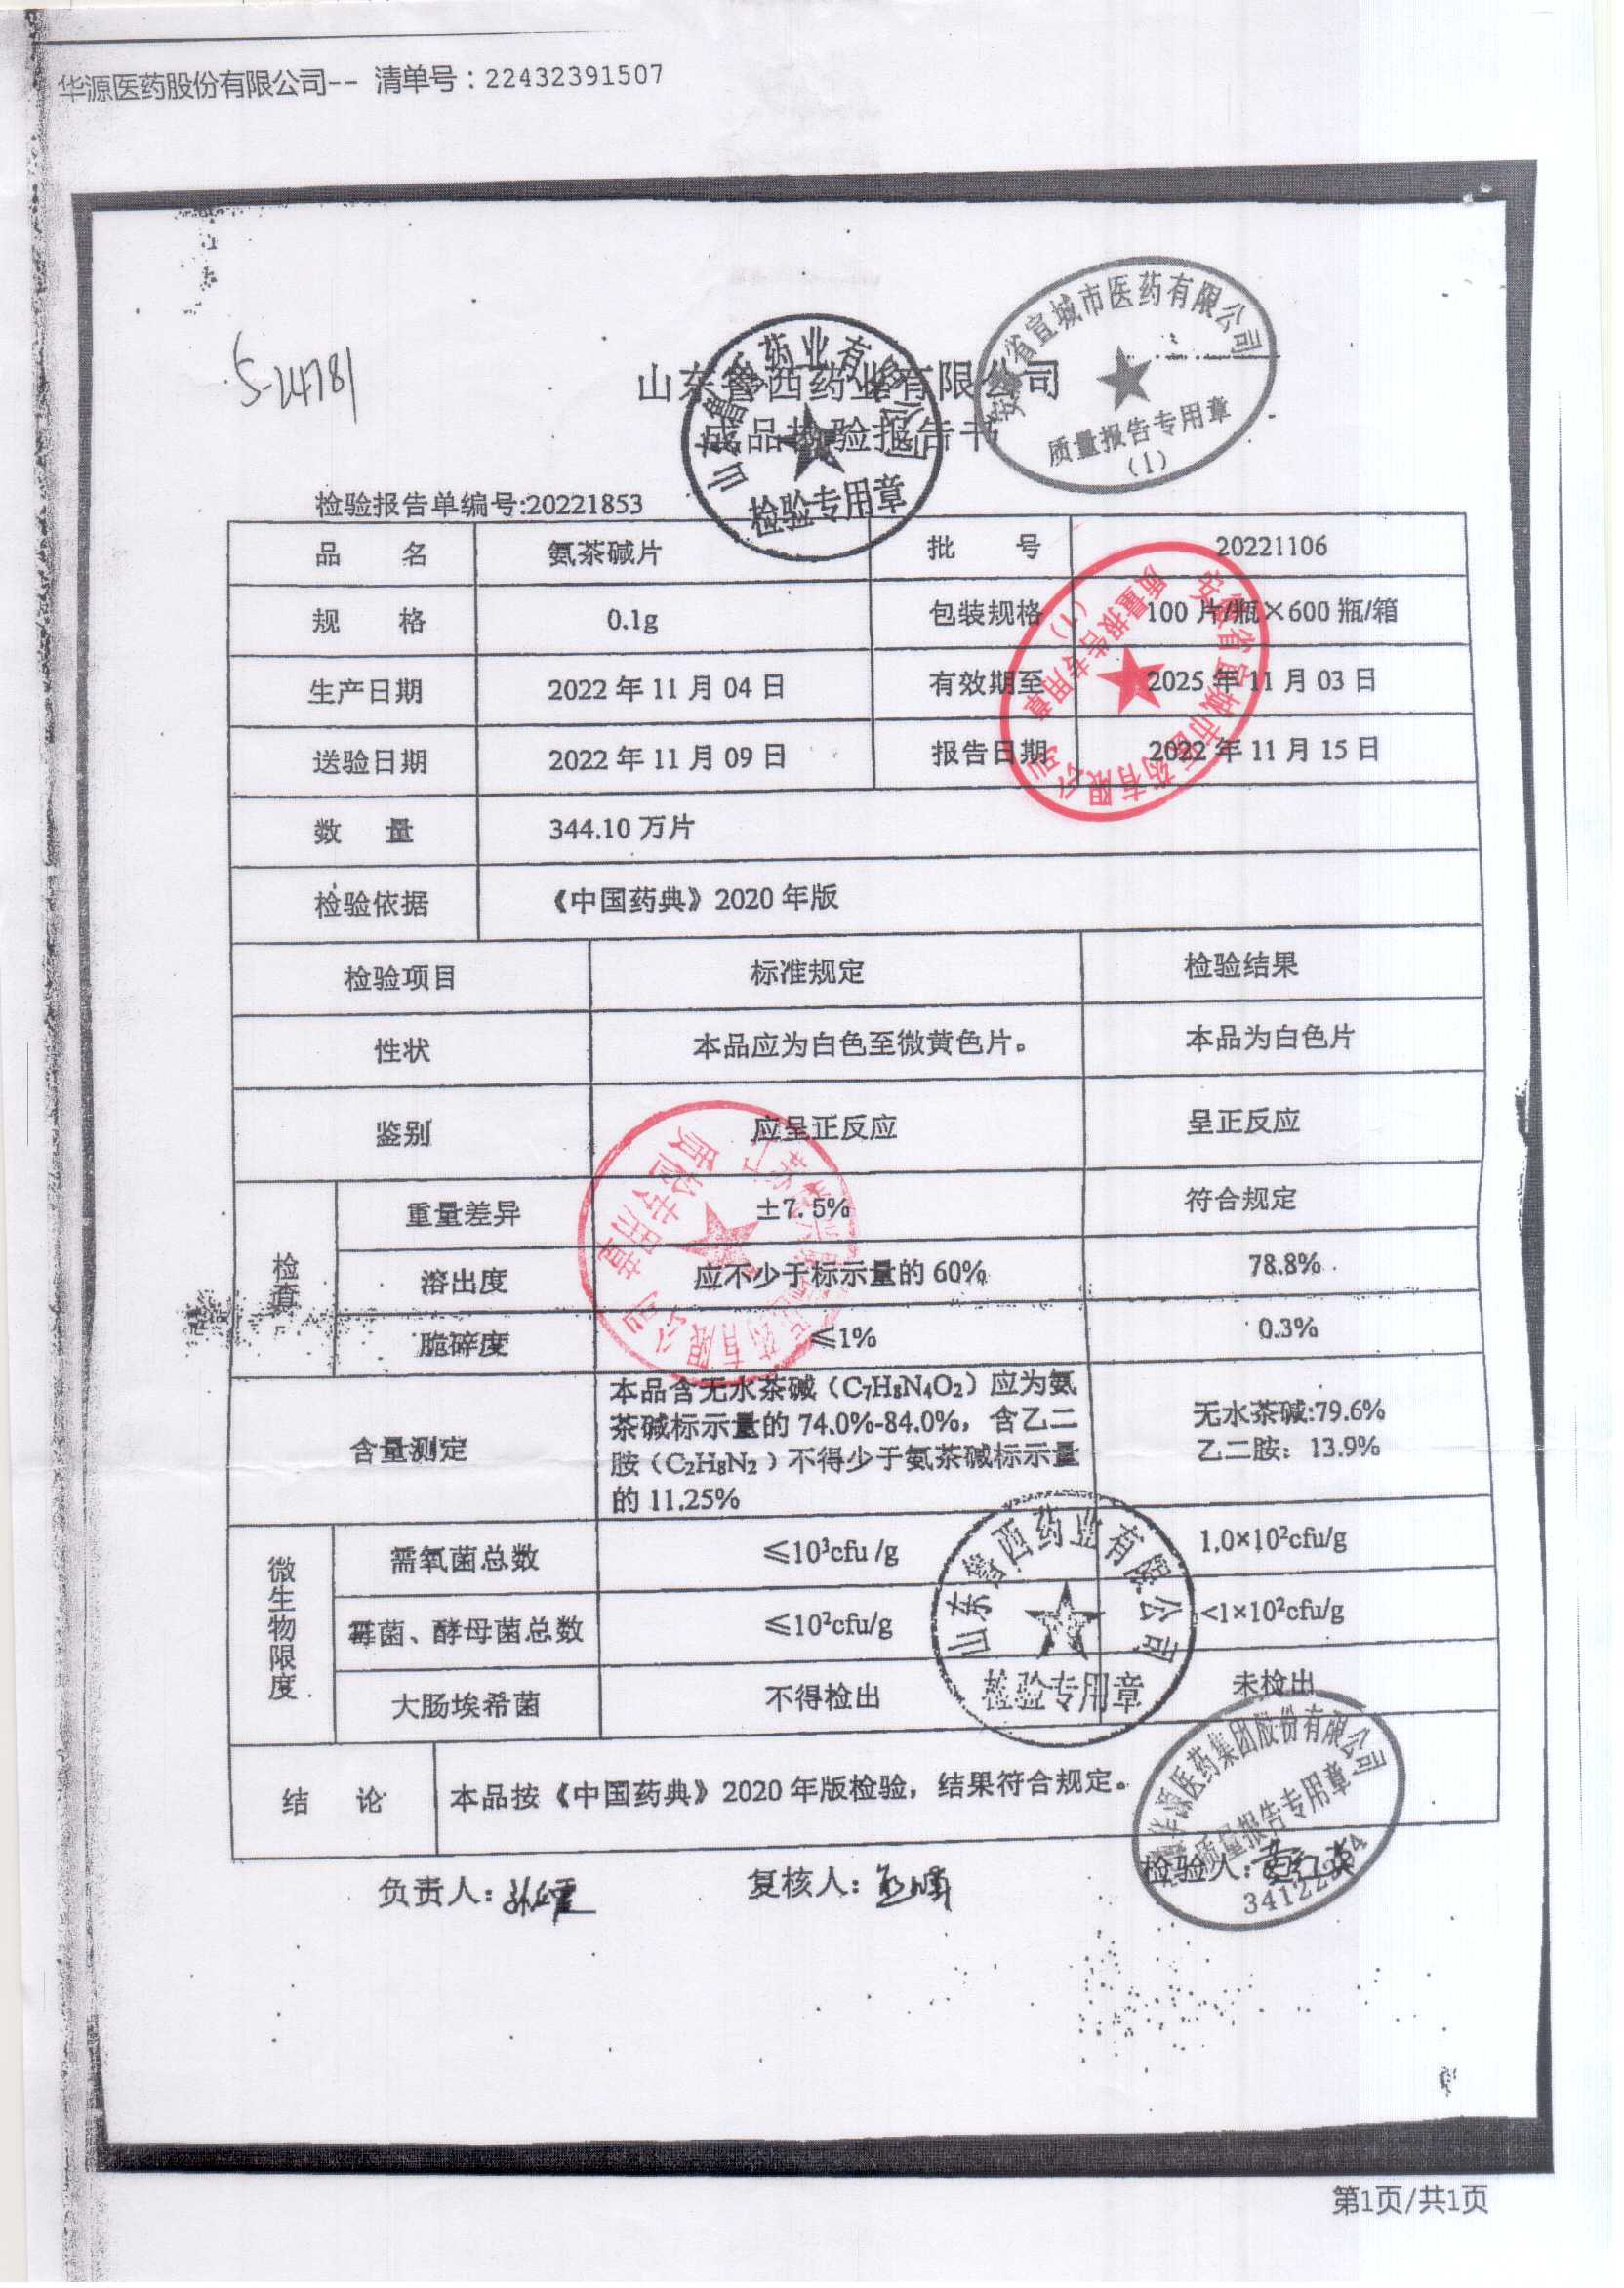 华源医药股份有限公司-- 清单号：22432391507
5-24781
山东鲁西药业有限公司
成品检验报告书
检验报告单编号:20221853
品 名 氨茶碱片 批 号 20221106
规 格 0.1g 包装规格 100 片/瓶×600 瓶/箱
生产日期 2022 年 11 月 04 日 有效期至 2025 年 11 月 03 日
送验日期 2022 年 11 月 09 日 报告日期 2022 年 11 月 15 日
数 量 344.10 万片
检验依据 《中国药典》2020 年版
检验项目 标准规定 检验结果
性状 本品应为白色至微黄色片。 本品为白色片
鉴别 应呈正反应 呈正反应
检查
重量差异 ±7.5% 符合规定
溶出度 应不少于标示量的 60% 78.8%
脆碎度 ≤1% 0.3%
含量测定
本品含无水茶碱（C₇H₈N₄O₂）应为氨
茶碱标示量的 74.0%-84.0%，含乙二
胺（C₂H₈N₂）不得少于氨茶碱标示量
的 11.25%
无水茶碱:79.6%
乙二胺：13.9%
微生物限度
需氧菌总数 ≤10³cfu /g 1.0×10²cfu/g
霉菌、酵母菌总数 ≤10²cfu/g <1×10²cfu/g
大肠埃希菌 不得检出 未检出
结 论 本品按《中国药典》2020 年版检验，结果符合规定。
负责人： 复核人： 检验人：
山东鲁西药业有限公司
检验专用章
安徽省宣城市医药有限公司
质量报告专用章
（1）
安徽省宣城市医药有限公司
质量报告专用章
（1）
医药有限公司
质检专用章
山东鲁西药业有限公司
检验专用章
华源医药集团股份有限公司
质量报告专用章
第1页/共1页